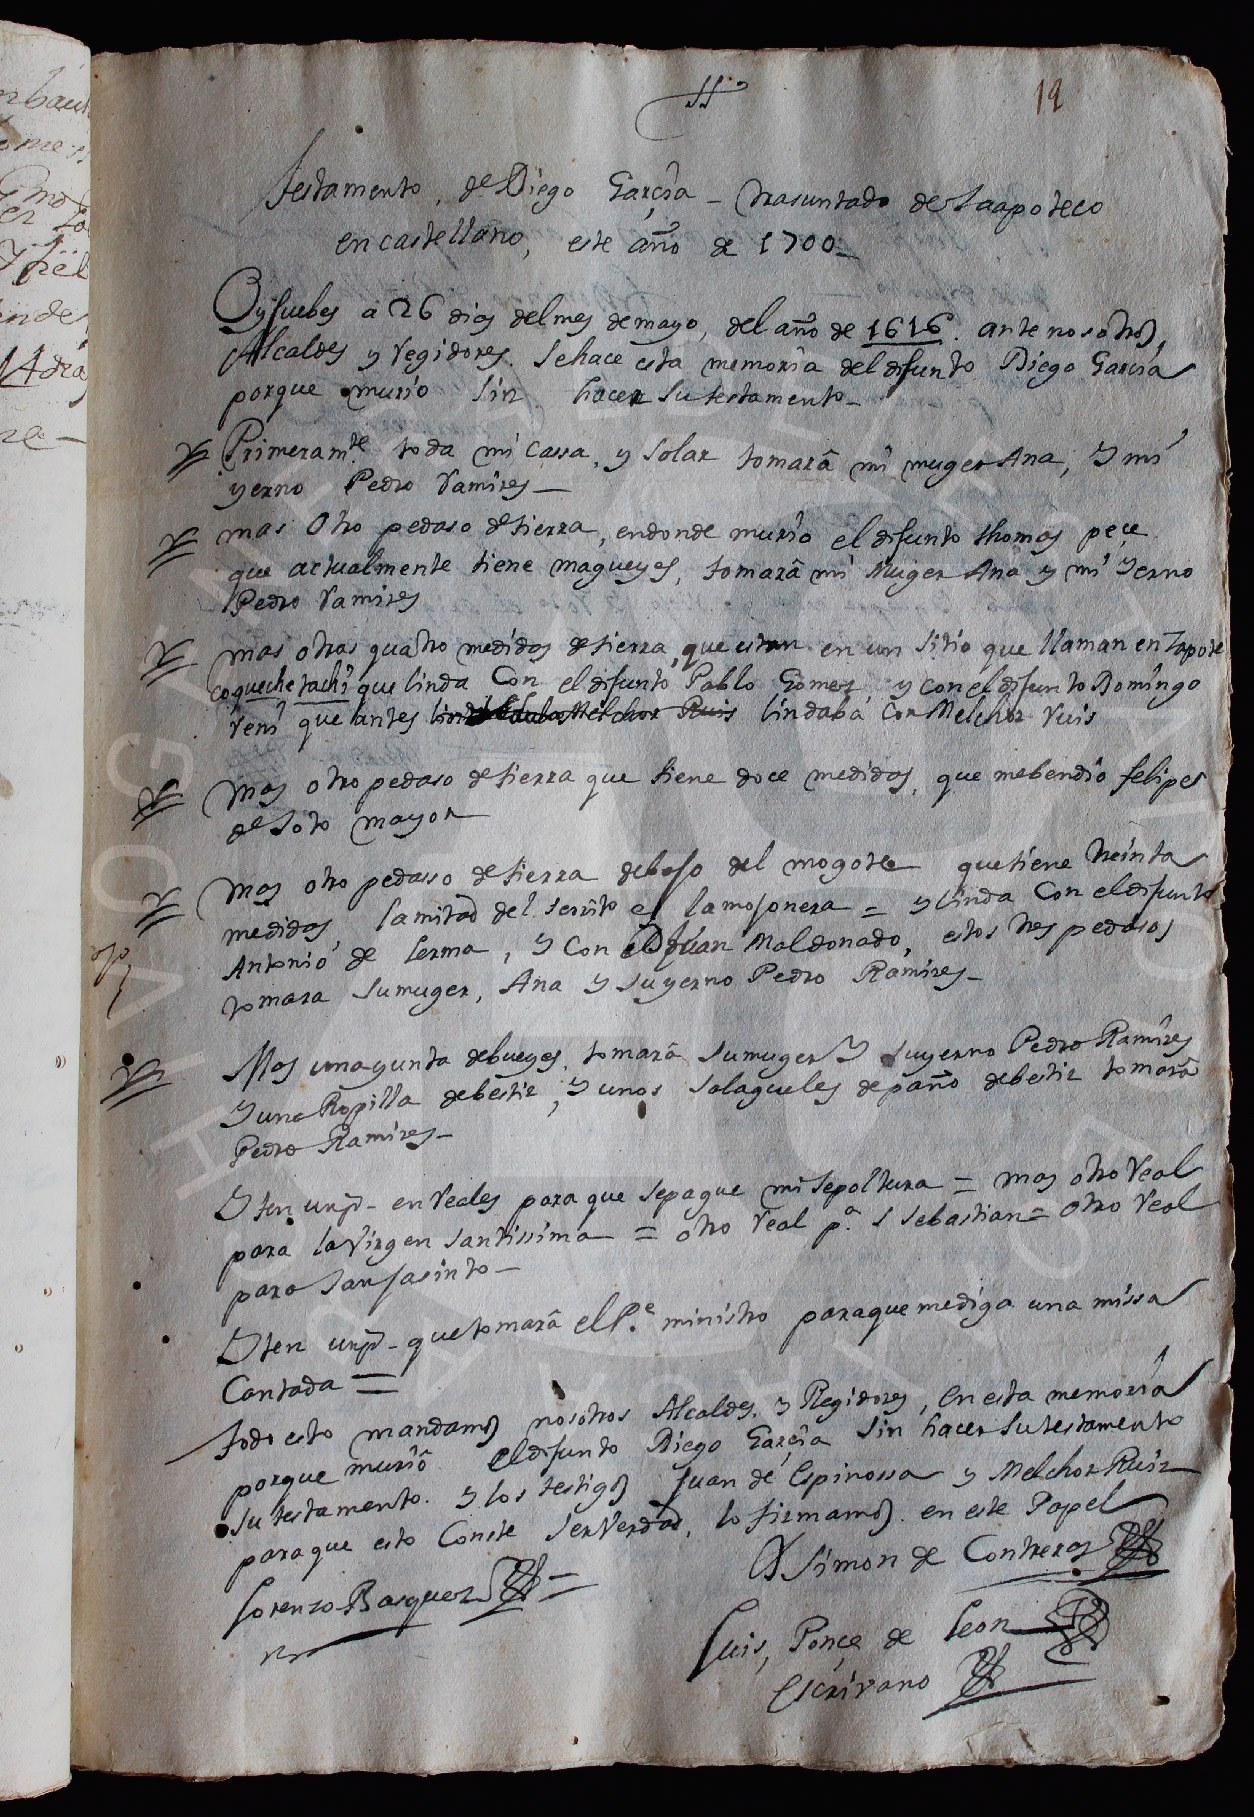 12
testamento, de Diego Garçia - trasuntado de Saapoteco
en castellano, este año de 1700 =
Oy juebes a 26 dias del mes de mayo, del año de 1616. ante nosotros,
Alcaldes y regidores. se hace esta memoria del difunto Diego Garcia
porque murio sin hacer su testamento -
Primeramte. toda mi cassa, y solar tomarâ mi muger Ana, y mi
yerno Pedro ramires -
mas otro pedaso de tierra, endonde murio el difunto thomas peçe
que actualmente tiene magueyes, tomarâ mi muger Ana y mi yerno
Pedro ramires
mas otras quatro medidas de tierra, que estan en un sitio que llaman en
coquechetachi que linda con el difunto Pablo Gomez y con el difunto Domingo
reni que antes Melchor Ruis lindaba con Melchor ruis
mas otro pedaso de tierra que tiene doce medidas, que mebendio felipes
de Soto mayor
mas otro pedasso de tierra debajo del mogote que tiene treinta
medidas, la mitad del serrito es la mojonera = y linda con el difunto
Antonio de lerma, y con Juan Maldonado, estos tres pedasos
ojo
tomara su muger, Ana y su yerno Pedro Ramires -
Mas una yunta debueyes. tomarâ su muger y su yerno Pedro Ramires
y una Ropilla debestir, y unos salagueles de paño debestir tomarâ
Pedro Ramires -
Yten un p - en reales para que sepague mi sepoltura = mas otro real
para la Virgen santissima = otro real pa. S Sebastian = otro real
para San Jasinto -
Yten un p - que tomarâ el Pe. ministro paraque mediga una missa
Cantada =
todo esto mandamos nosotros Alcaldes. y Regidores, en esta memoria
porque muriô el difunto Diego Garçia sin hacer su testamento
su testamento. y los testigos Juan de Espinossa y Melchor Ruiz
para que esto Conste ser Verdad, lo firmamos. en este Papel
Simon de Contreras
Lorenzo Basquez
Luis, Ponçe de Leon
escrivano